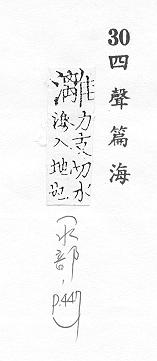 30 四聲篇海
灕 力支切水
滲入地也
(水部, p.447)